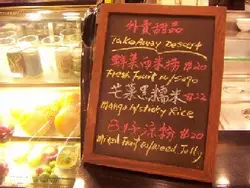 外賣甜品
Take Away Dessert
鮮菓西米撈 $20
Fresh Fruit w/Sago
芒菓黑糯米 $22
Mango w/sticky Rice
涼粉 $20
Mixed Fruit w/weed Jelly